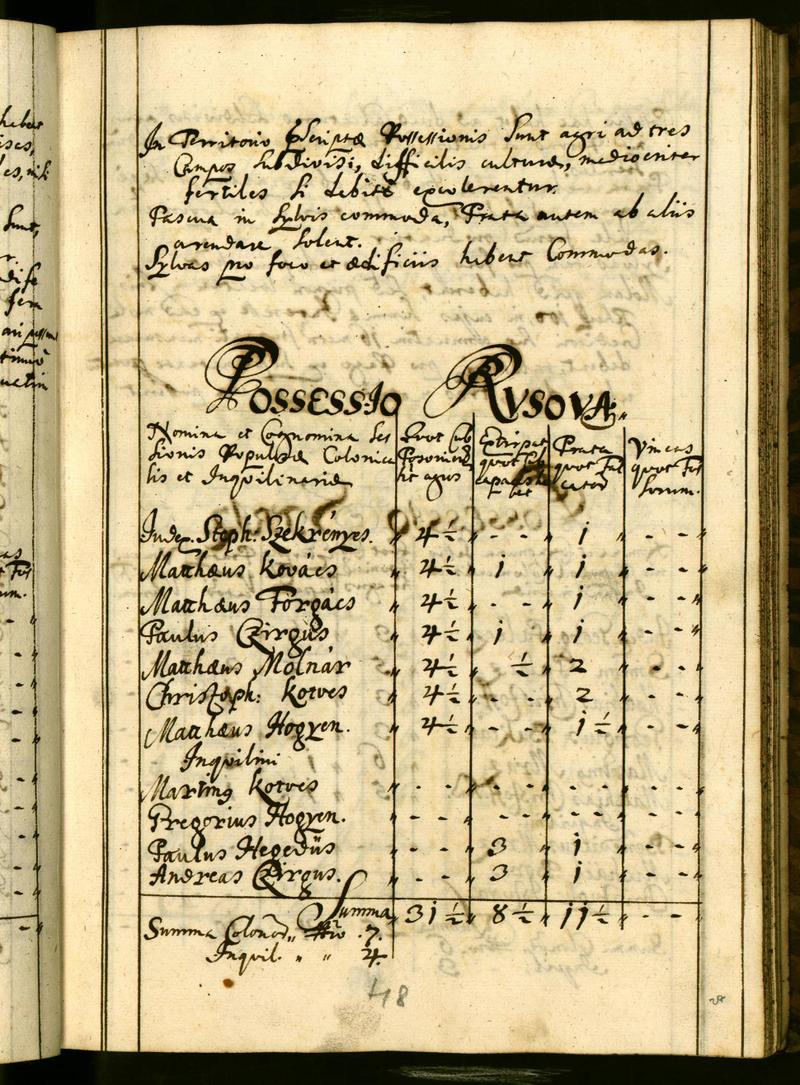 hebent
ises,
les, nisi
sunt,
In Territorio pscriptæ Possessionis sunt agri ad tres
Campos subdivisi, difficilis culturæ, mediocriter
fertiles si debite excolerentur.
Pascua in sylvis commoda, Prata autem ab aliis
arendare solent.
Sylvas pro foco et ædificiis habent Commodas.
POSSESSIO RUSOVA
Nomina et Cognomina Ses
sionis Populosæ Colonica
lis et Inquilinariæ
Quot Cub
Posonien
sit agus
Extirpat
quot Cub
capacit
Prata
quot Fal
cator
Vineas
quot Fos
sorum.
Judex. Steph: Szekrényes. " 4 ½ " - - " 1 " - - "
Matthæus Kovács " 4 ½ " 1 " 1 " - - "
Matthæus Forgács " 4 ½ " - - " 1 " - - "
Paulus Czirgus " 4 ½ " 1 " 1 " - - "
Matthæus Molnár " 4 ½ " ½ " 2 " - - "
Christoph: Kotves " 4 ½ " - - " 2 " - - "
Matthæus Hogyen. " 4 ½ " - - " 1 ½ " - - "
Inquilini
Martinus Kotves " - - " - - " - - " - - "
Gregorius Hogyen. " - - " - - " - - " - - "
Paulus Hegedüs " - - " 3 " 1 " - - "
Andreas Czirgus. " - - " 3 " 1 " - - "
Summa 31 ½ " 8 ½ " 11 ½ " - - "
Summa Colonor " Nro . 7.
Inquil. " " 4.
48